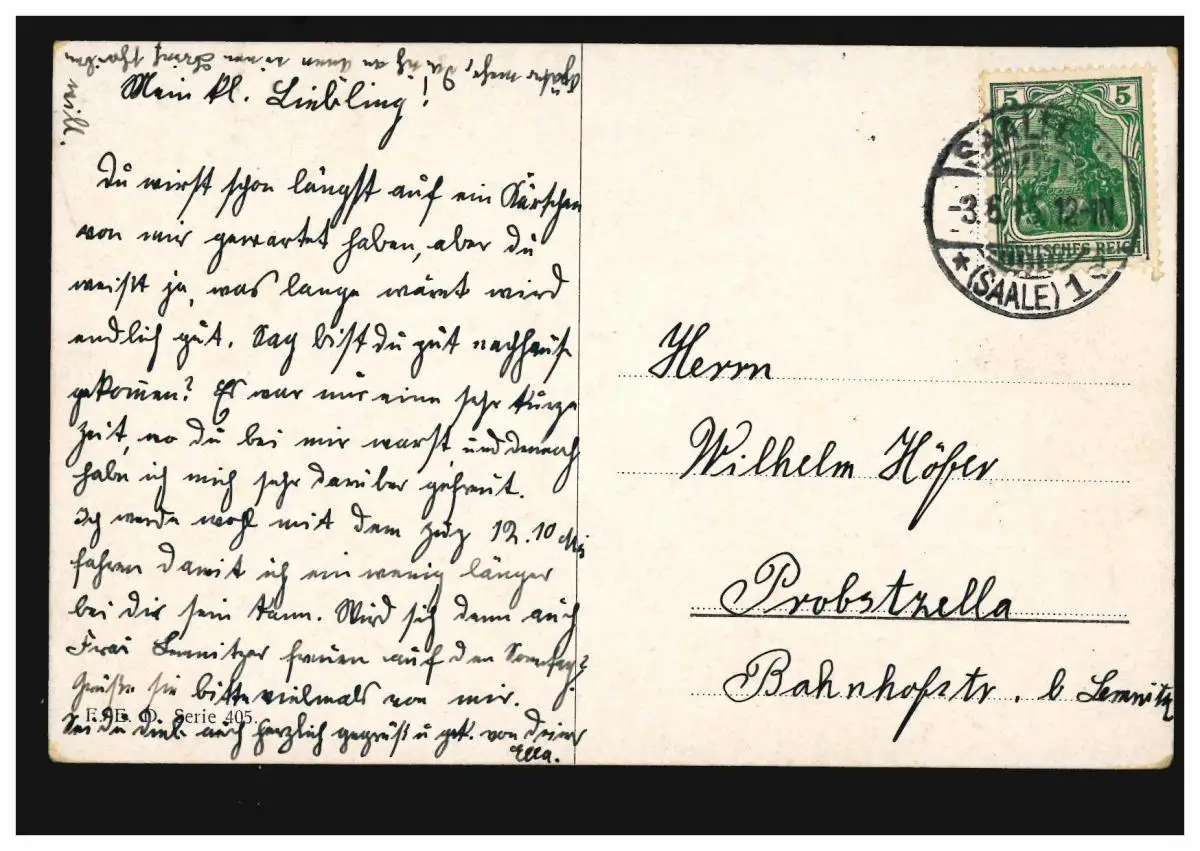 Mein kl. Liebling!
Du wirst schon längst auf ein Kärtchen
von mir gewartet haben, aber du
weißt ja, was lange wäret wird
endlich gut. Sag bist du gut nachhause
gekommen? Es war nur eine sehr kurze
Zeit, wo du bei mir warst und dennoch
habe ich mich sehr darüber gefreut.
Ich werde wohl mit dem Zug 12.10
fahren damit ich ein wenig länger
bei dir sein kann. Wird sich denn auch
Frau Lemnitzer freuen auf den Sonntag?
Grüße sie bitte vielmals von mir.
F. E. D. Serie 405.
Sei du lieb. auch herzlich gegrüß u gek. von deiner
Ella.
später mehr, da ich an einen Brief schreiben
will.
5 5
DEUTSCHES REICH
SAALF
-3.6.15. 12-1N
* (SAALE) 1
Herrn
Wilhelm Höfer
Probstzella
Bahnhofstr. b. Lemnitz